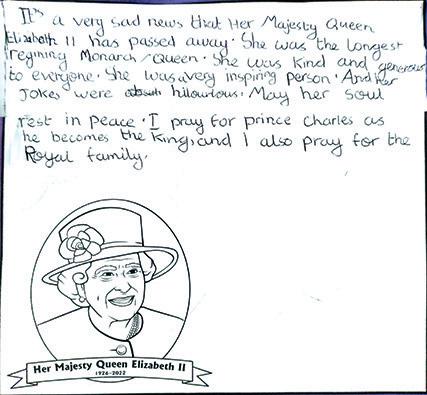 It's a very sad news that Her Majesty Queen
Elizabeth II has passed away. She was the longest
regining Monarch/Queen. She was kind and generous
to everyone. She was very inspiring person. And her
Jokes were hilourious. May her soul
rest in peace. I pray for prince charles as
he becomes the King, and I also pray for the
Royal family.
Her Majesty Queen Elizabeth II
1926-2022